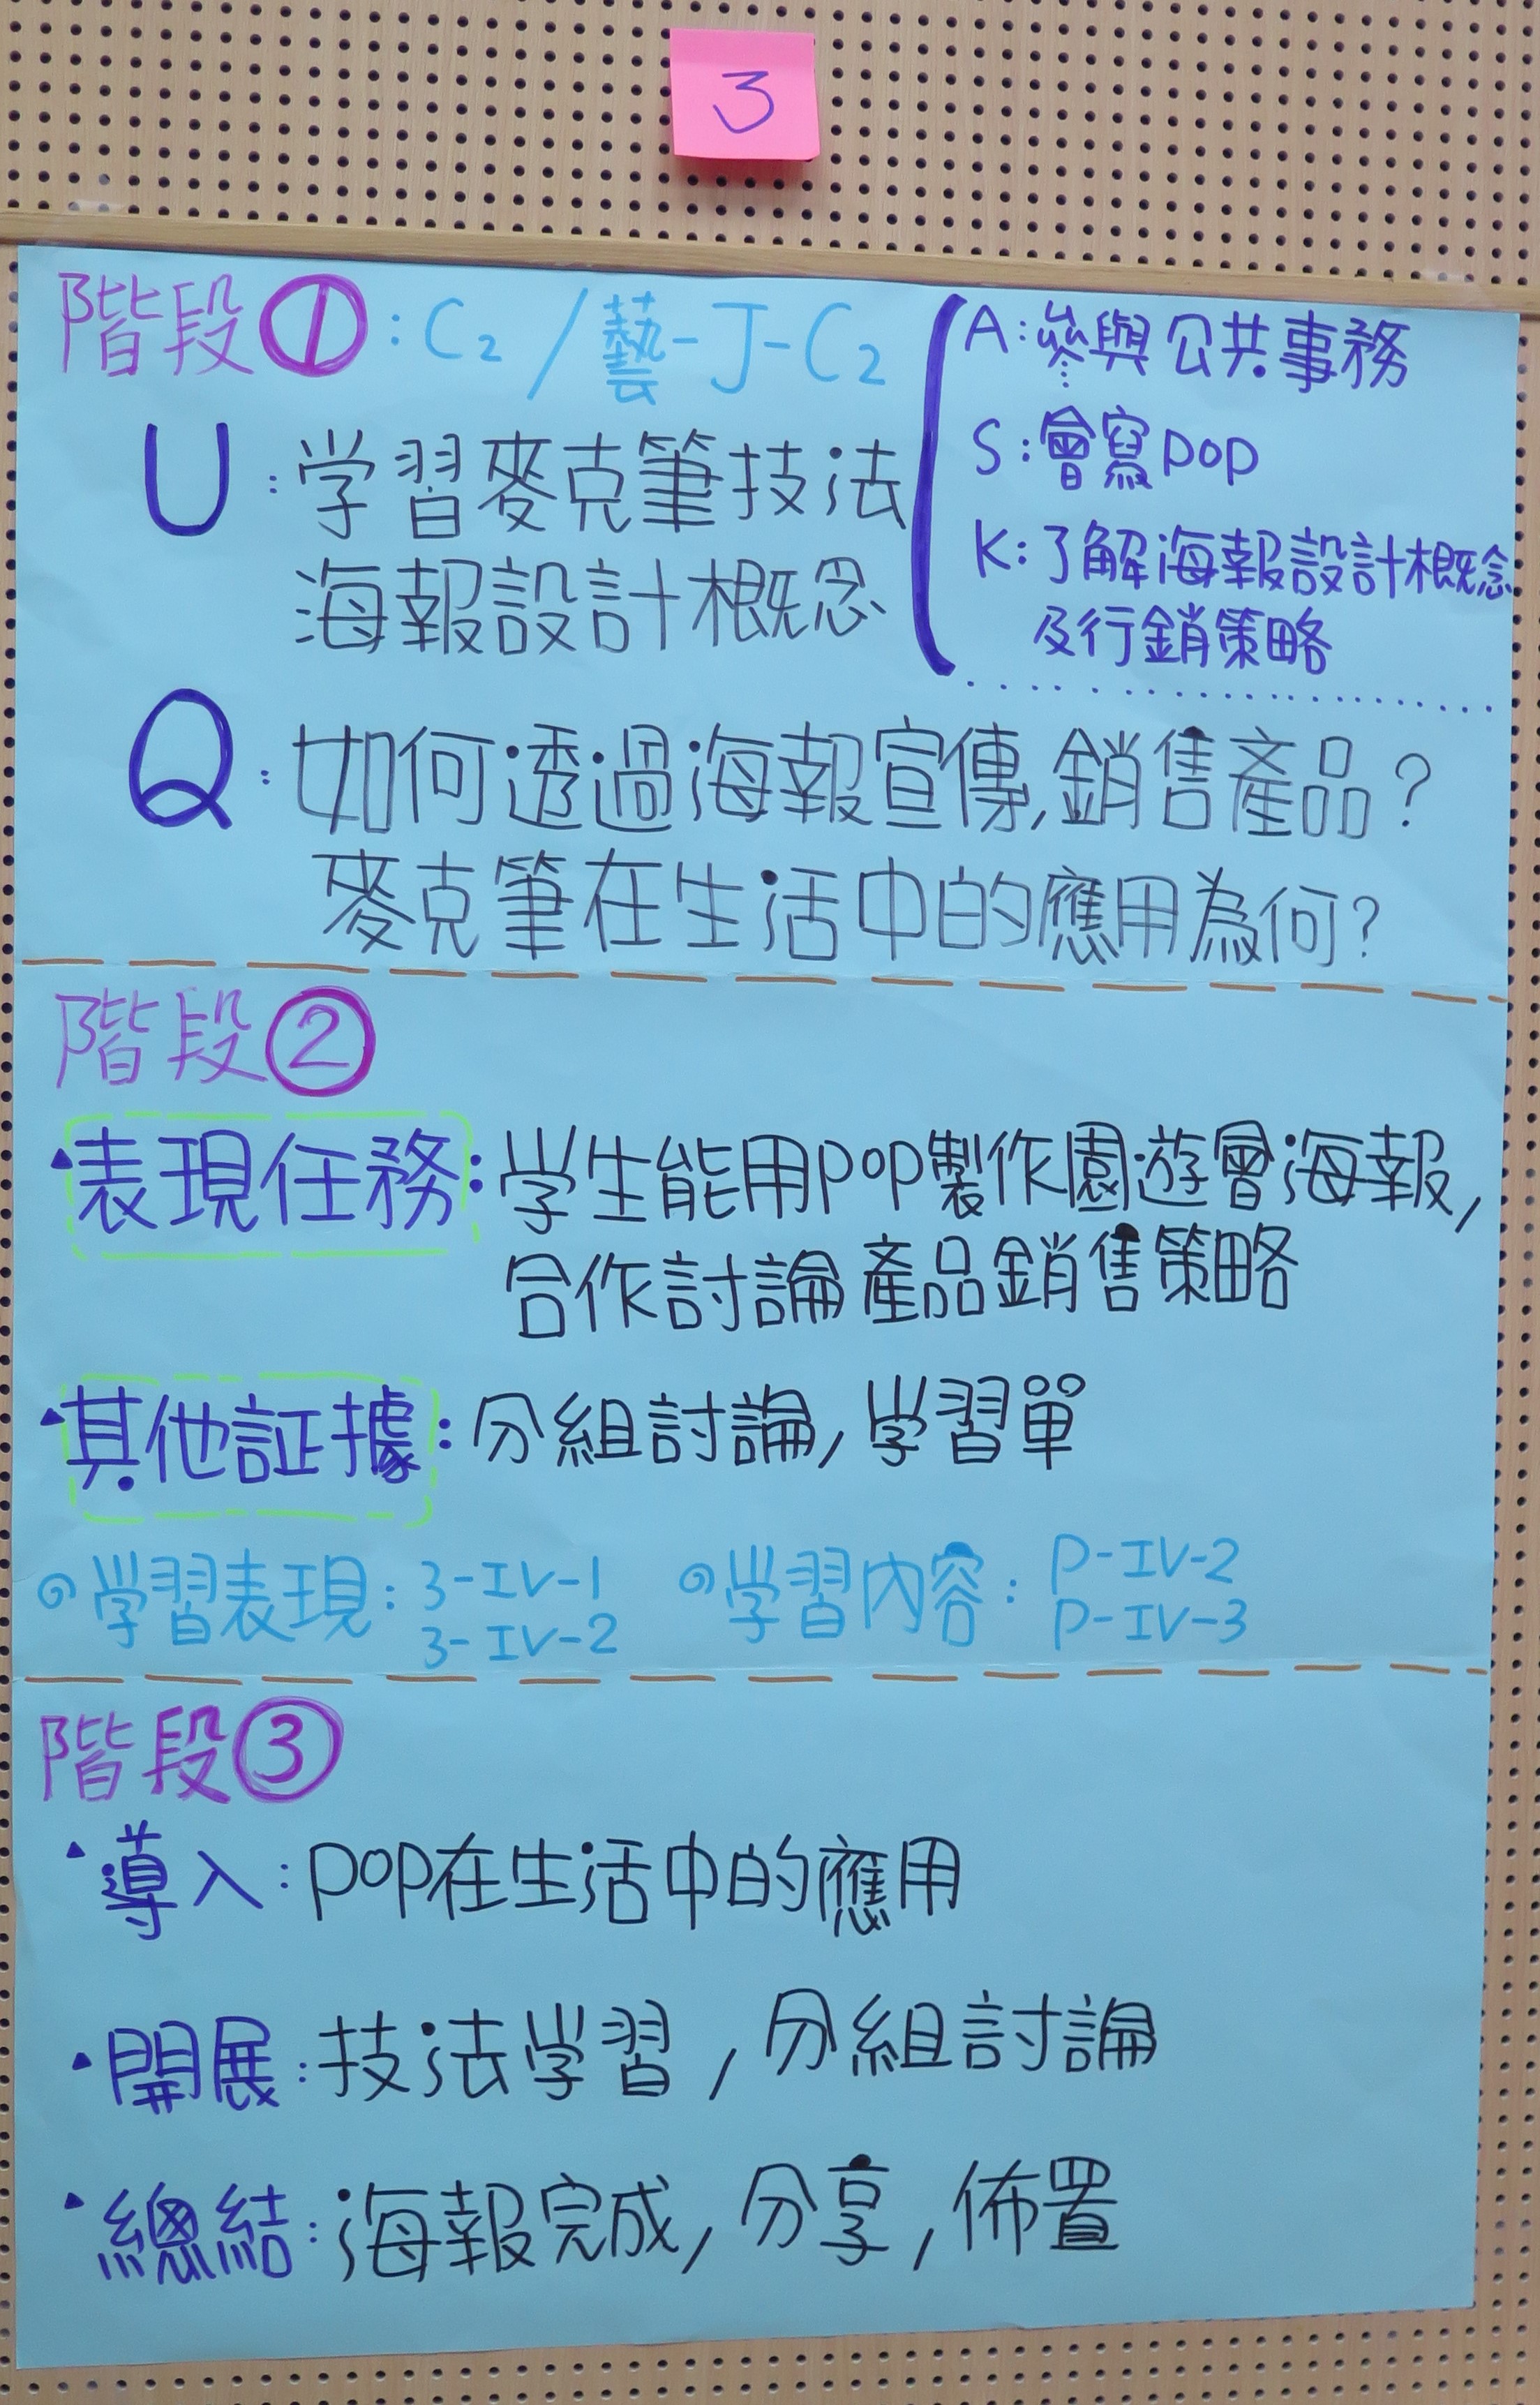 3
階段①:C2/藝-J-C2
U:学習麥克筆技法
海報設計概念
A:參與公共事務
S:會寫pop
K:了解海報設計概念
及行銷策略
Q:如何透過海報宣傳,銷售產品?
麥克筆在生活中的應用為何?
階段②
表現任務:学生能用pop製作園遊會海報,
合作討論產品銷售策略
其他証據:分組討論,学習單
学習表現:3-IV-1
3-IV-2
学習內容:P-IV-2
P-IV-3
階段③
導入:pop在生活中的應用
開展:技法学習,分組討論
總結:海報完成,分享,佈置